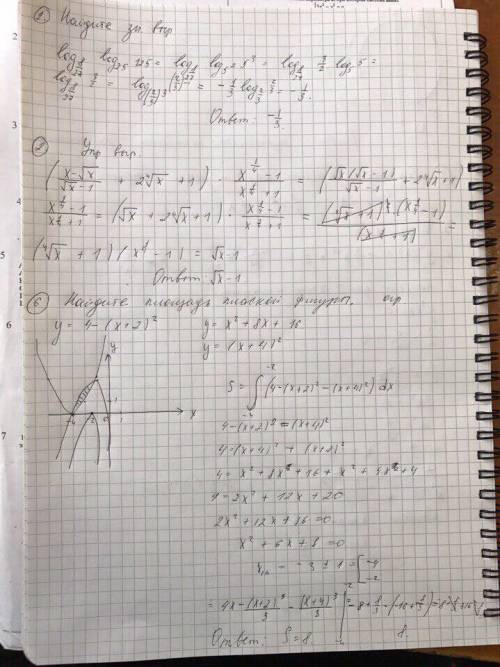 ① Найдите зн. выр
log_{8/27} log_{25} 125 = log_{8/27} log_{5^2} 5^3 = log_{8/27} 3/2 log_5 5 =
log_{8/27} 3/2 = log_{(2/3)^3} (2/3)^{-1} = -1/3 log_{2/3} 2/3 = -1/3.
Ответ: -1/3.
Упр выр.
((x-√x)/(√x-1) + 2∜x + 1) · (x^{1/4} -1)/(x^{1/4} +1) = (√x(√x-1)/(√x-1) + 2∜x +1) ·
(x^{1/4} -1)/(x^{1/4} +1) = (√x + 2∜x +1) · (x^{1/4} -1)/(x^{1/4} +1) = (∜x +1)^2 · (x^{1/4} -1)/(x^{1/4} +1) =
(∜x + 1)(x^{1/4} -1) = √x -1
Ответ √x -1
⑥ Найдите площадь плоской фигуры, огр
y = 4-(x+2)^2 y = x^2 + 8x + 16
y = (x+4)^2
y
S = ∫_{-4}^{-2} (4-(x+2)^2 -(x+4)^2) dx
-4 -2 0 1 x
4-(x+2)^2 = (x+4)^2
4=(x+4)^2 + (x+2)^2
4= x^2 + 8x + 16 + x^2 + 4x + 4
4=2x^2 + 12x + 20
2x^2 + 12x + 16 = 0
x^2 + 6x + 8 = 0
x_{1,2} = -3 ± 1 = [-4
-2
= 4x - (x+2)^3/3 - (x+4)^3/3 |_{-4}^{-2} = -8 +
8.
Ответ: S = 8.
2
3
5
6
7